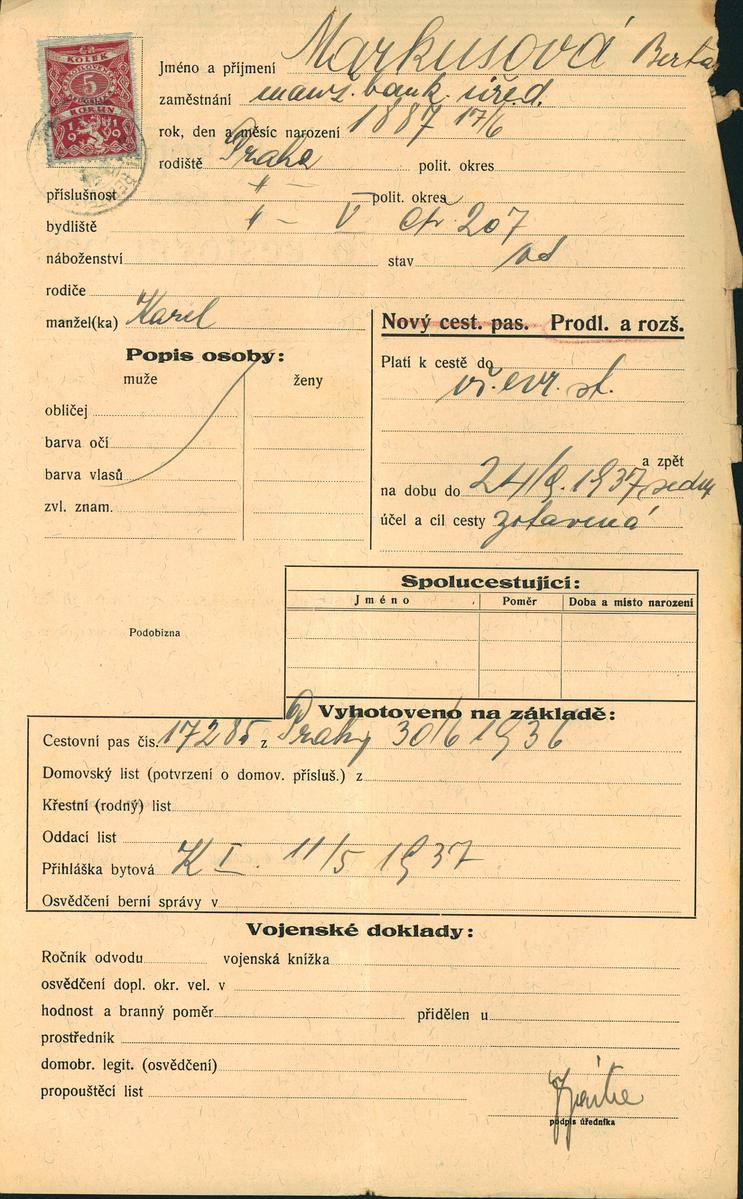 KOLEK
5
KORUN
1919
Jméno a příjmení Markusová Berta
zaměstnání manž. bank. úřed.
rok, den a měsíc narození 1887 17/6
rodiště Praha polit. okres
příslušnost " – polit. okres
bydliště " – V čp. 207
náboženství stav
rodiče
manžel(ka) Karel
Nový cest. pas. Prodl. a rozš.
Popis osoby:
muže ženy
obličej
barva očí
barva vlasů
zvl. znam.
Platí k cestě do
vš. evr. st.
a zpět
na dobu do 24/9. 1937
účel a cíl cesty zotavená
Spolucestující:
Jméno Poměr Doba a místo narození
Podobizna
Vyhotoveno na základě:
Cestovní pas čís. 17285 z Prahy 30/6 1936
Domovský list (potvrzení o domov. přísluš.) z
Křestní (rodný) list
Oddací list
Přihláška bytová K I. 11/5 1937
Osvědčení berní správy v
Vojenské doklady:
Ročník odvodu vojenská knížka
osvědčení dopl. okr. vel. v
hodnost a branný poměr přidělen u
prostředník
domobr. legit. (osvědčení)
propouštěcí list
podpis úředníka